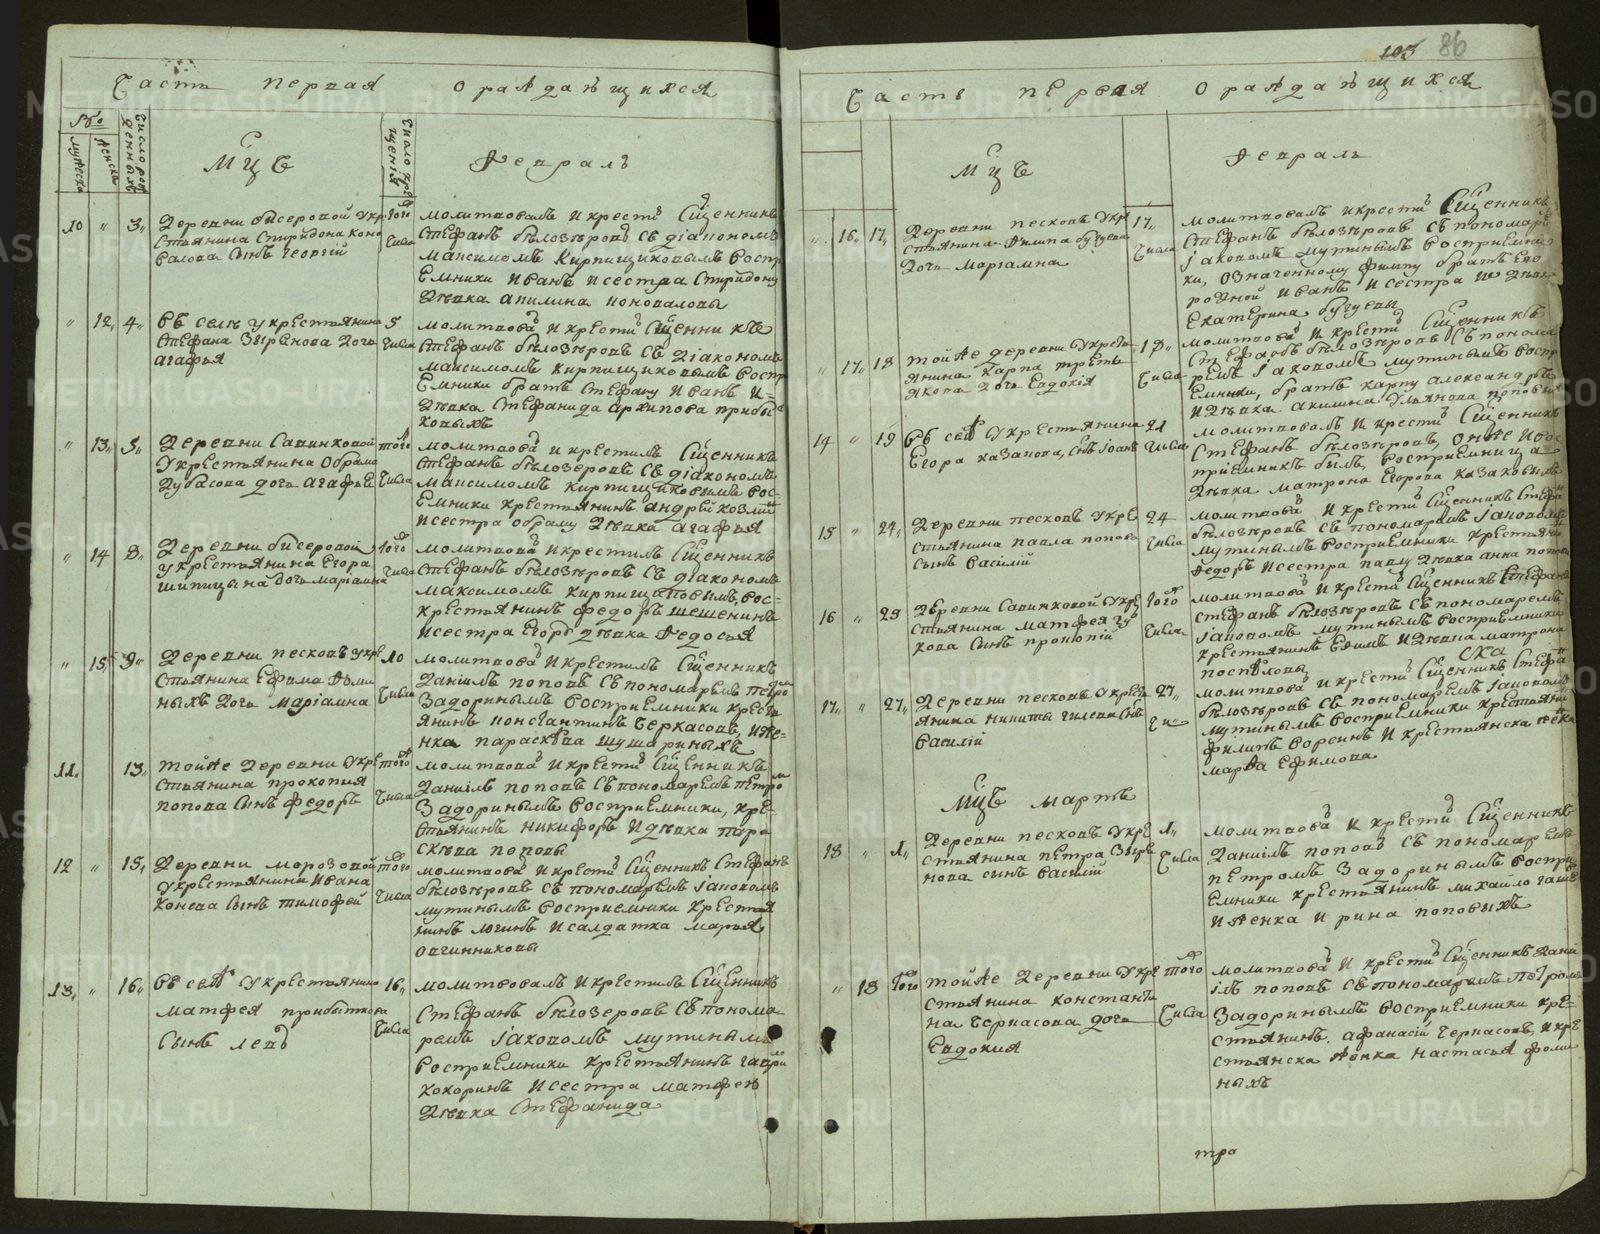 Часть первая о раждающихся
№о
мужеска
женска
Число рожденiя
Мцъ
Число крещенiя
Февраль
10 " 3
Деревни бисеровой у крестьянина Спиридона Коновалова сынъ Георгiй
того числа
молитвовалъ и крестилъ Сщенникъ
Стефанъ бѣлозѣровъ съ дiакономъ
максимомъ кирпищиковымъ воспр
емники Иванъ и сестра Спиридону
дѣвка акилина коноваловы
" 12 4
въ селѣ у крестьянина Стефана Зырянова дочь агафья
5 числа
молитвовалъ и крестилъ Сщенникъ
Стефанъ бѣлозѣровъ съ дiакономъ
максимомъ кирпищиковымъ воспр
емники братъ Стефану Иванъ и
дѣвка Стефанида архипова прибы
ковыхъ
" 13 5
деревни Савинковой
у крестьянина Обрама
дубасова дочь агафья
того числа
молитвовалъ и крестилъ Сщенникъ
Стефанъ бѣлозеровъ съ дiакономъ
максимомъ кирпищиковымъ вос-
емники крестьянинъ андрей козлин
и сестра обраму дѣвка агафья
" 14 8
деревни бисеровой
у крестьянина Егора
шипицына дочь марiамна
того числа
молитвовалъ и крестилъ Сщенникъ
Стефанъ бѣлозѣровъ съ дiакономъ
максимомъ кирпищиковымъ, вос-
крестьянинъ федоръ шешенинъ
и сестра Егору дѣвка Федосья
" 15 9
деревни песковъ у кре
стьянина Ефима
ныхъ дочь марiамна
10 числа
молитвовалъ и крестилъ Сщенникъ
Данiилъ поповъ съ пономаремъ петром
Задоринымъ восприемники кресть
янинъ константинъ Черкасовъ, и же-
нка параскева шушариныхъ
11 13
тойже деревни у кре
стьянина прокопия
попова сынъ Федоръ
того числа
молитвовалъ и крестилъ Сщенникъ
Данiилъ поповъ съ пономаремъ петром
Задоринымъ восприемники, кре-
стьянинъ никифоръ и дѣвка пара
скѣва поповы
12 " 15
деревни морозовой
у крестьянина Ивана
Конева сынъ тимофей
того числа
молитвовалъ и крестилъ Сщенникъ Стефанъ
бѣлозѣровъ съ пономаремъ iаковомъ
мутинымъ восприемники крестья
нинъ логинъ и салдатка марья
овчинниковы
13 " 16
въ селѣ у крестьянина
матфея прибыткова
сынъ левъ
16 числа
молитвовалъ и крестилъ Сщенникъ
Стефанъ бѣлозеровъ съ понома
ремъ iаковомъ мутинымъ
восприемники крестьянинъ гаври
кокоринъ и сестра матфею
дѣвка Стефанида
103 86
Часть первая о раждающихся
Мцъ
Февраль
" 16 17
деревни песковъ у кре
стьянина Филипа бушуева
дочь марiамна
17 числа
молитвовалъ и крестилъ Сщенникъ
Стефанъ бѣлозѣровъ съ пономаремъ
iаковомъ мутинымъ восприемни
ки, означенному филипу братъ его
родной Иванъ и сестра их дѣвка
Екатерина бушуевы
" 17 18
тойже деревни у кресть
янина карпа
дочь Евдокiя
18 числа
молитвовалъ и крестилъ Сщенникъ
Стефанъ бѣлозѣровъ съ понома
ремъ iаковомъ мутинымъ воспр
емники, братъ карпу александръ
и дѣвка акилина ульянова поповыхъ
14 " 19
въ селѣ у крестьянина
Егора казакова, сынъ Iоанъ
21 числа
молитвовалъ и крестилъ Сщенникъ
Стефанъ бѣлозѣровъ, онъже и вос
приемникъ былъ, восприемница
дѣвка матрона Егорова казаковыхъ
15 " 24
деревни песковъ у кре
стьянина павла попова
сынъ василiй
24 числа
молитвовалъ и крестилъ Сщенникъ Стефа
бѣлозѣровъ съ пономаремъ iаковомъ
мутинымъ восприемники крестьянин
Федоръ и сестра павлу дѣвка анна поповы
16 " 25
деревни Савинковой у кре
стьянина матфея
кова сынъ прокопiй
того числа
молитвовалъ и крестилъ Сщенникъ Стефанъ
бѣлозѣровъ съ пономаремъ
iаковомъ мутинымъ восприемники
крестьянинъ и дѣвка матрона
поспѣловы
17 " 27
деревни песковъ у кресть
янина никиты гилева сынъ
василiй
27 чи
молитвовалъ и крестилъ Сщенникъ Стефа
бѣлозѣровъ съ пономаремъ iаковомъ
мутинымъ восприемники крестьяни
филипъ и крестьянска женка
марфа Ефимова
Мцъ мартъ
18 " 1
деревни песковъ у кре
стьянина петра Зыря
нова сынъ василiй
1 числа
молитвовалъ и крестилъ Сщенникъ
Данiилъ поповъ съ пономаремъ
петромъ Задоринымъ воспри
емники крестьянинъ михайло
и женка Ирина поповыхъ
" 18 того
тойже деревни у кре
стьянина константи
на черкасова дочь
Евдокия
того числа
молитвовалъ и крестилъ Сщенникъ Дани
iлъ поповъ съ пономаремъ петромъ
Задоринымъ восприемники кре-
стьянинъ афанасiй черкасовъ, и кре
стьянска жонка настасья фоми
ныхъ
тра